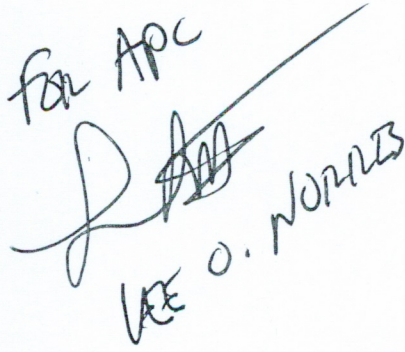 For APC
LEE O. NORRIS